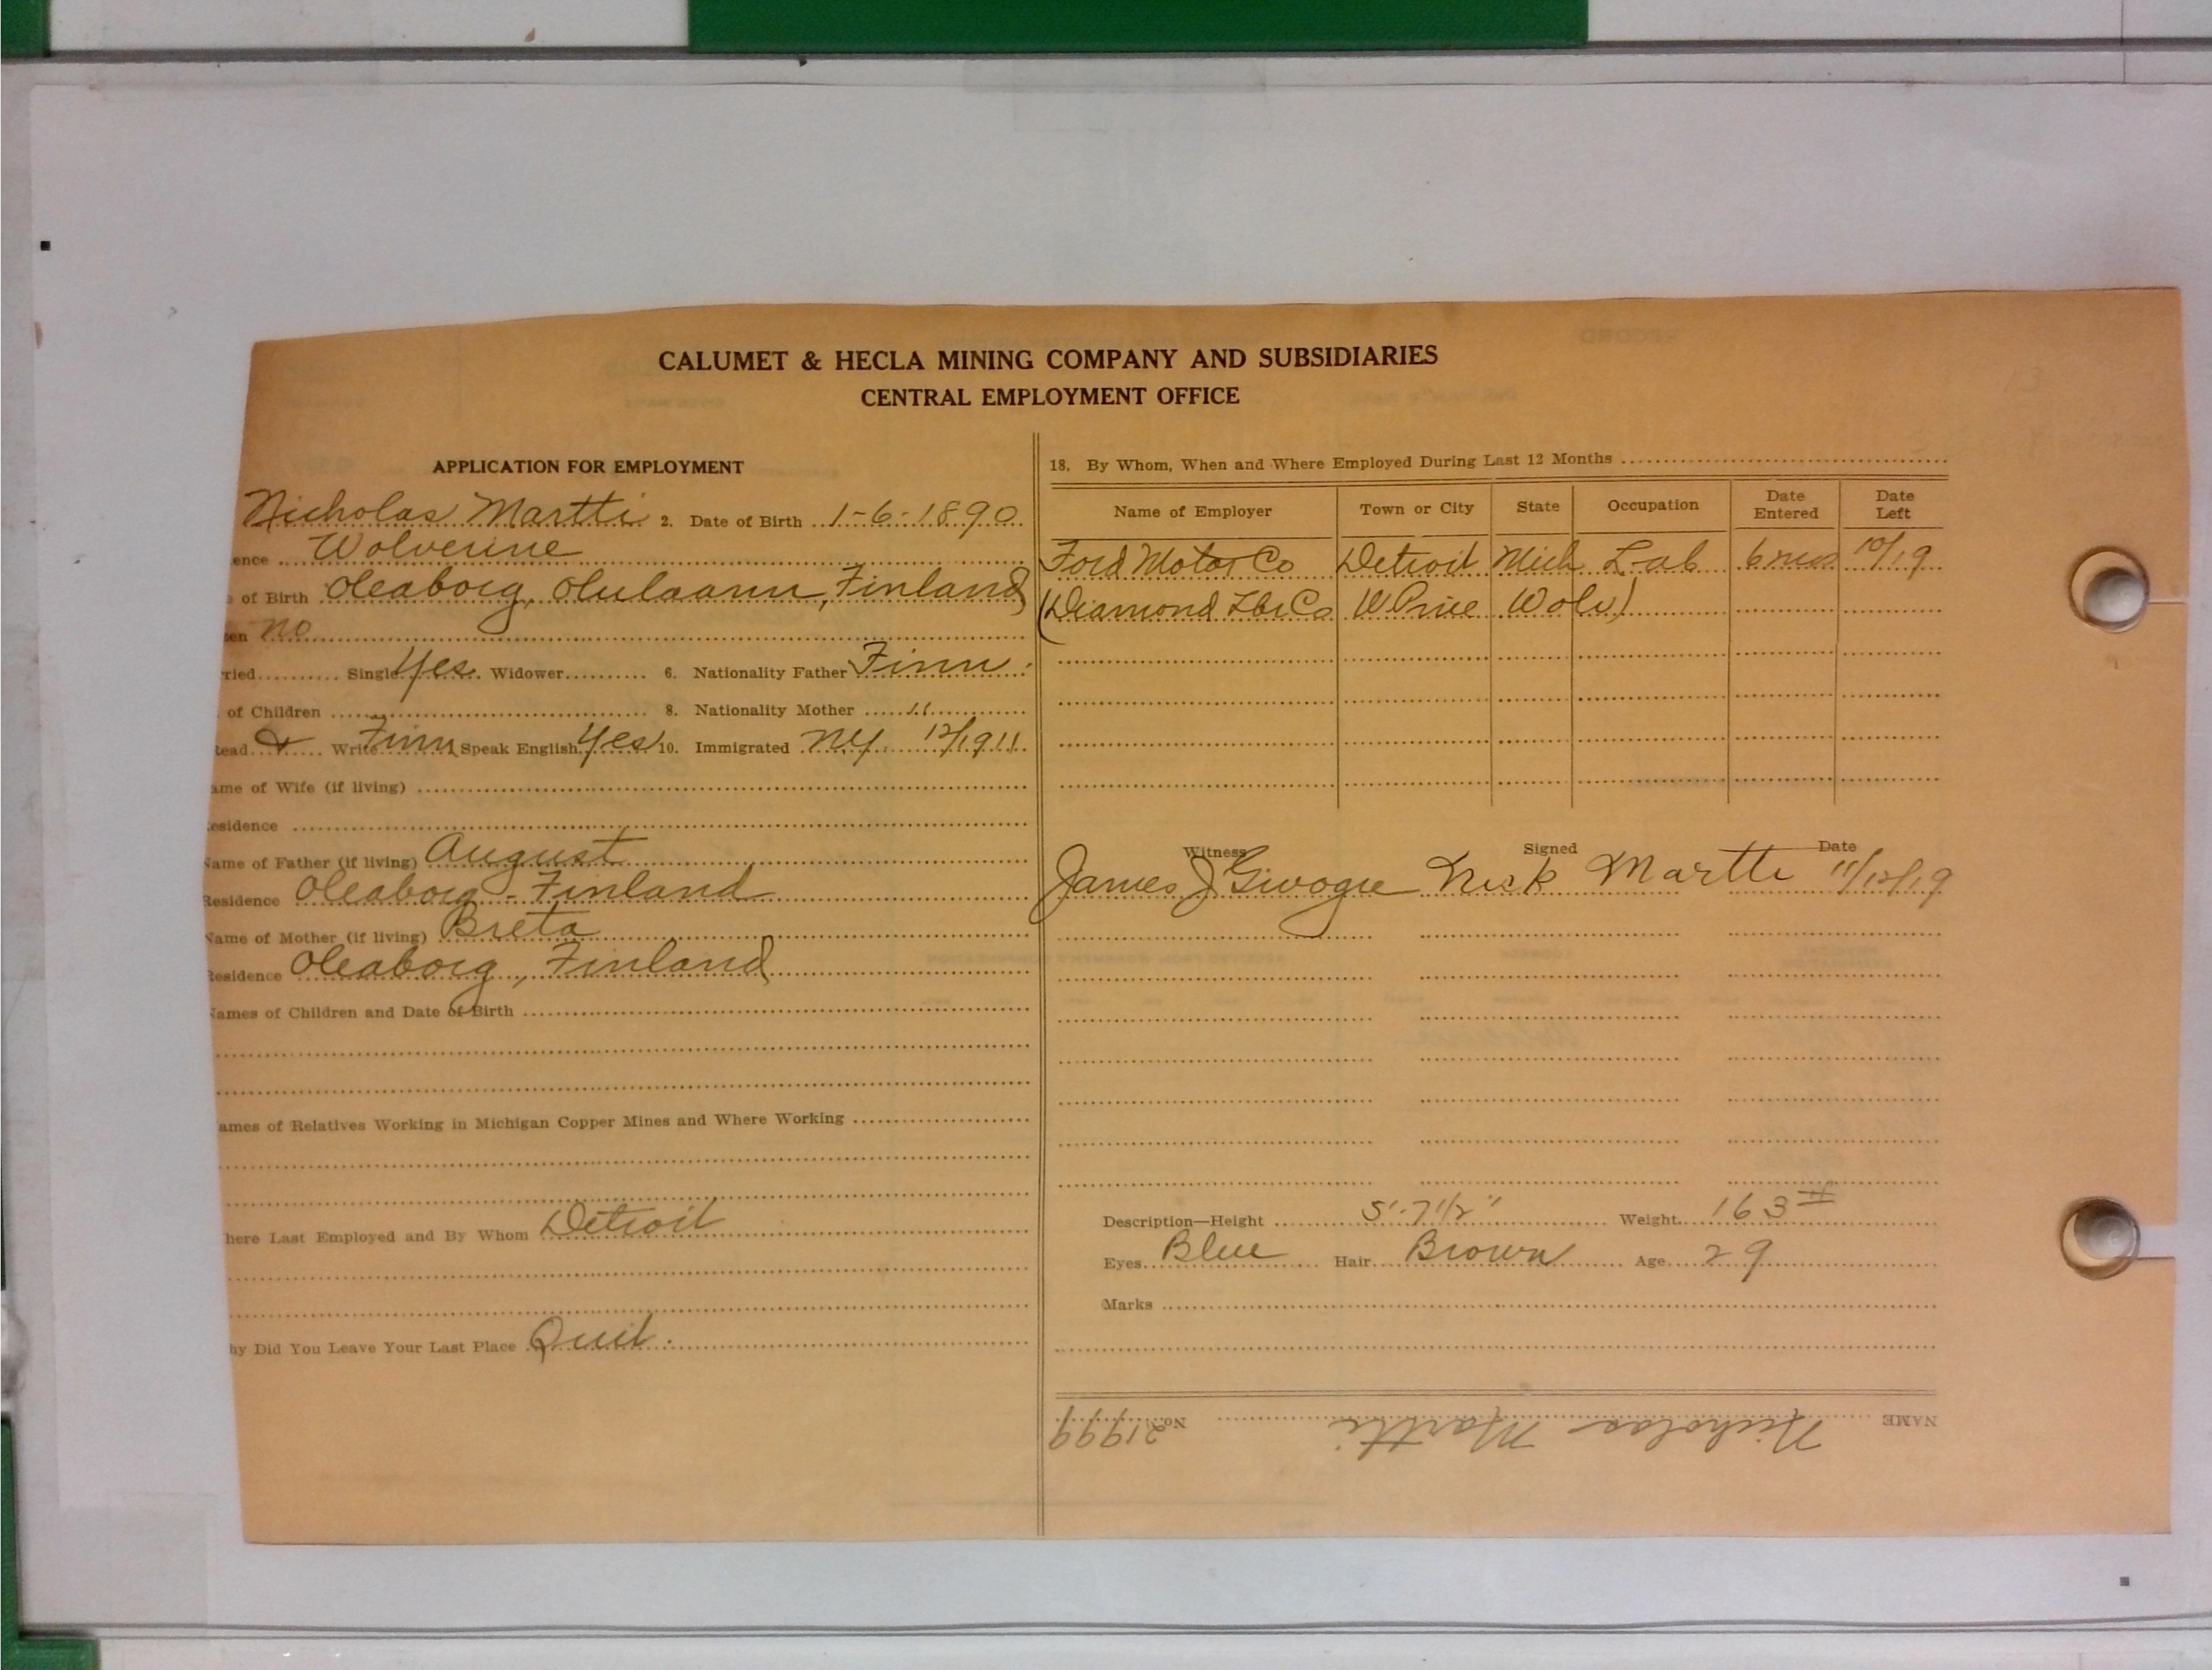 CALUMET & HECLA MINING COMPANY AND SUBSIDIARIES
CENTRAL EMPLOYMENT OFFICE
APPLICATION FOR EMPLOYMENT
Nicholas Martti 2. Date of Birth 1-6-1890
ence Wolverine
of Birth Oleaborg, Olulaann, Finland
zen no
ried Single Yes Widower 6. Nationality Father Finn
of Children 8. Nationality Mother "
Read & Write Finn Speak English Yes 10. Immigrated NY 12/1911
ame of Wife (if living)
esidence
Name of Father (if living) August
Residence Oleaborg - Finland
Name of Mother (if living) Breta
Residence Oleaborg, Finland
Names of Children and Date of Birth
ames of Relatives Working in Michigan Copper Mines and Where Working
here Last Employed and By Whom Detroit
hy Did You Leave Your Last Place Quit.
18. By Whom, When and Where Employed During Last 12 Months
Name of Employer Town or City State Occupation Date Entered Date Left
Ford Motor Co Detroit Mich Lab 6 mos 10/19
(Diamond Lbr Co W Price Wolv)
Witness Signed Date
James J Nick Martti 11/12/19
Description—Height 5'-7 1/2" Weight 163 #
Eyes Blue Hair Brown Age 29
Marks
NAME Nicholas Martti No. 21999